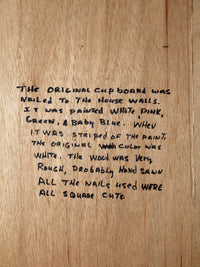 THE ORIGINAL CUPBOARD WAS
NAILED TO THE HOUSE WALLS.
IT WAS PAINTED WHITE, PINK,
GREEN, & BABY BLUE. WHEN
IT WAS STRIPED OF THE PAINT,
THE ORIGINAL COLOR WAS
WHITE. THE WOOD WAS VERY
ROUGH, PROBABLY HAND SAWN
ALL THE NAILS USED WERE
ALL SQUARE CUTS.